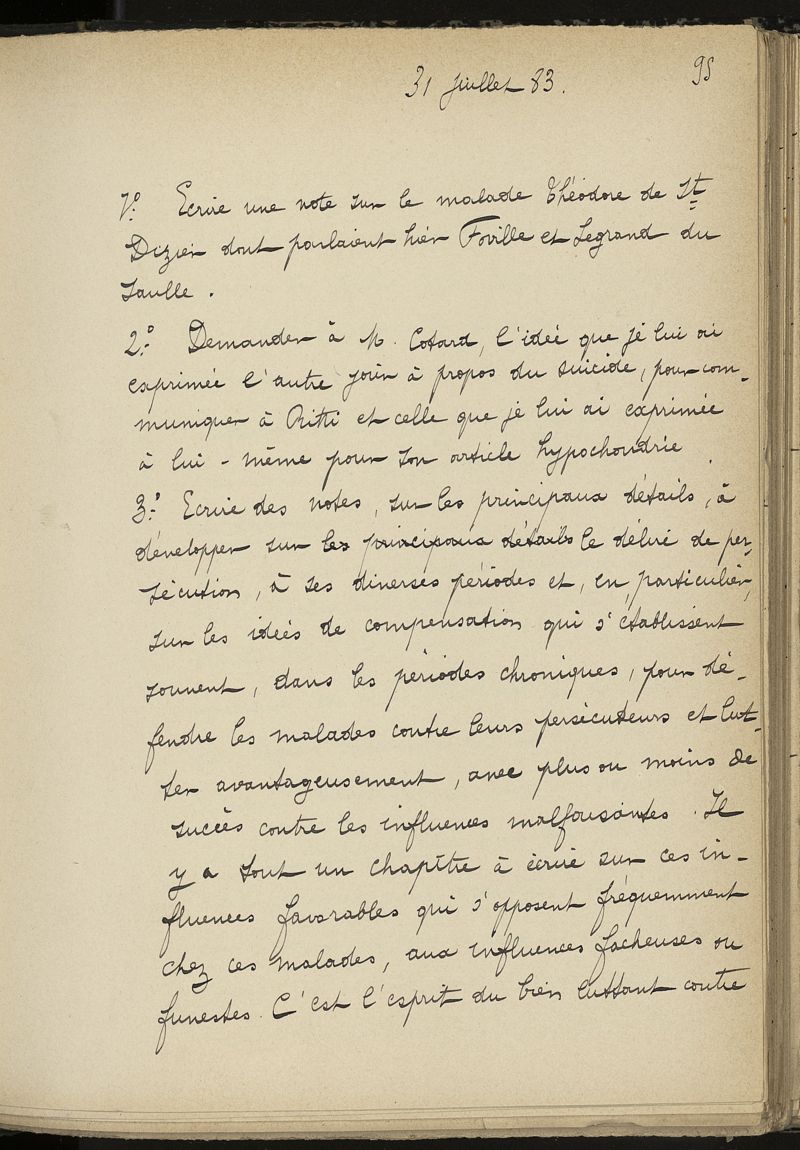 31 Juillet 83. 95
1.° Ecrire une note sur le malade Théodore de St
Dizier dont parlaient hier Foville et Legrand du
Saulle.
2.° Demander à M. Cotard, l'idée que je lui ai
exprimée l'autre jour à propos du suicide, pour com-
muniquer à Ritti et celle que je lui ai exprimée
à lui-même pour son article hypochondrie.
3.° Ecrire des notes, sur les principaux détails, à
développer sur les principaux détails le délire de per-
sécution, à ses diverses périodes et, en particulier,
sur les idées de compensation qui s'établissent
souvent, dans les périodes chroniques, pour dé-
fendre les malades contre leurs persécuteurs et lut-
ter avantageusement, avec plus ou moins de
succès contre les influences malfaisantes. Il
y a tout un chapître à écrire sur ces in-
fluences favorables qui s'opposent fréquemment
chez ces malades, aux influences facheuses ou
funestes. C'est l'esprit du bien luttant contre